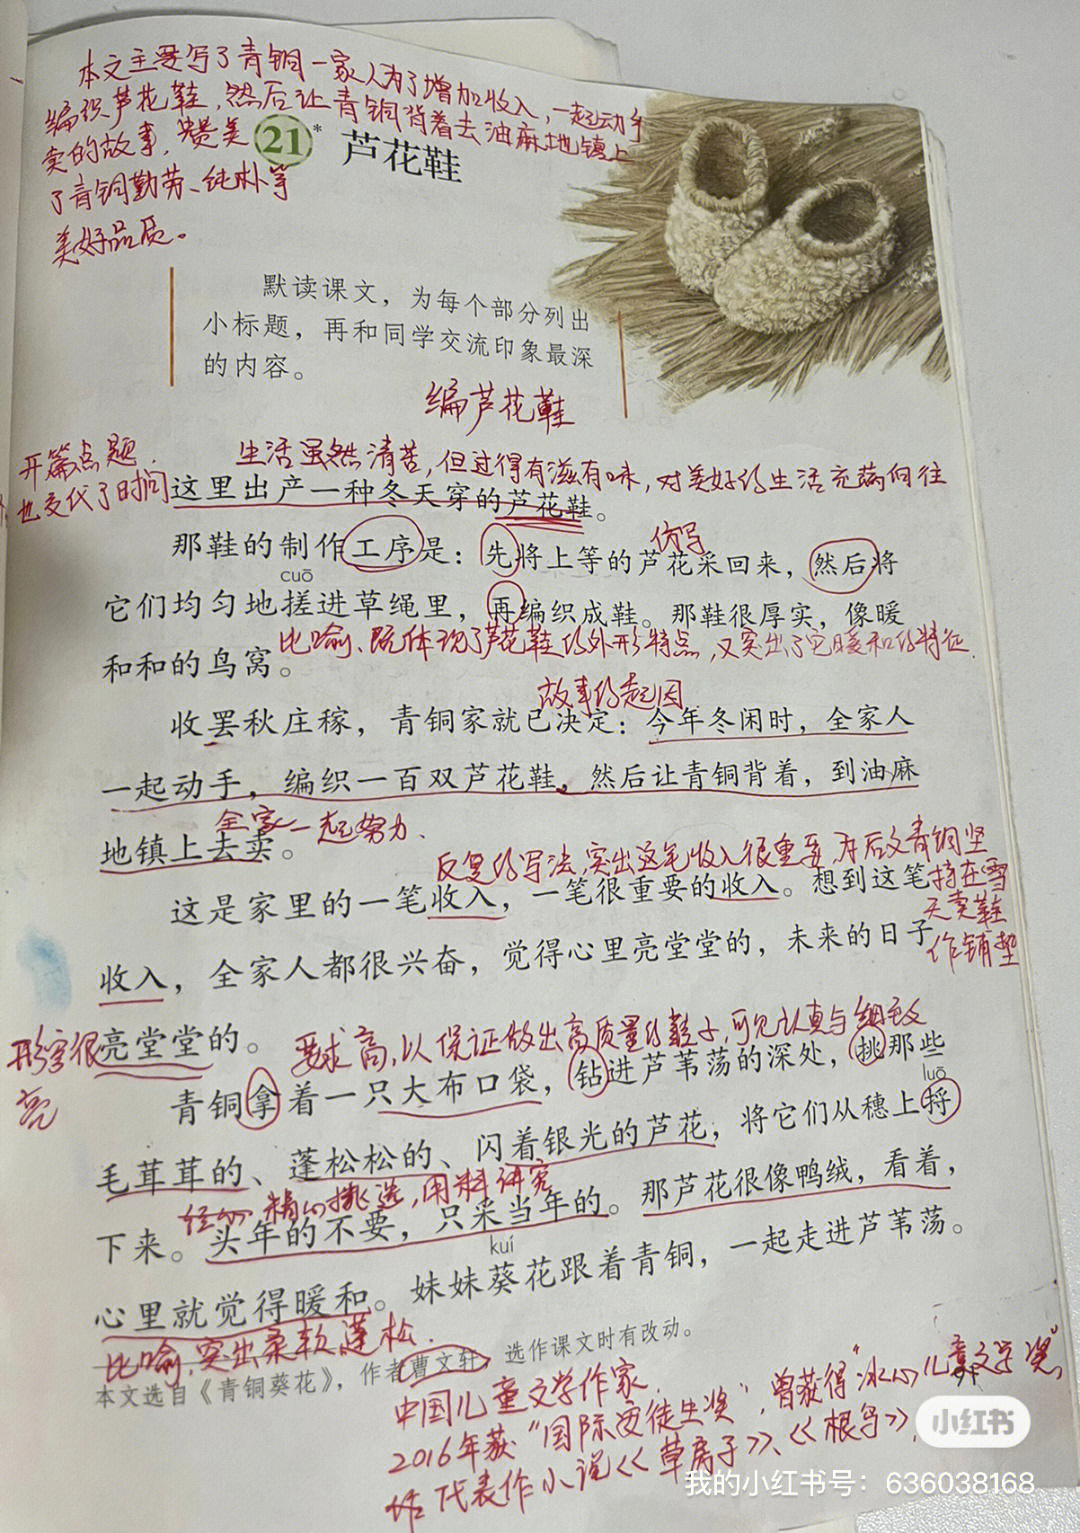 本文主要写了青铜一家人为了增加收入,一起动手
编织芦花鞋,然后让青铜背着去油麻地镇上
卖的故事,赞美
了青铜勤劳、纯朴等
美好品质。
21* 芦花鞋
默读课文，为每个部分列出
小标题，再和同学交流印象最深
的内容。
编芦花鞋
开篇点题
也交代了时间
生活虽然清苦,但过得有滋有味,对美好的生活充满向往
这里出产一种冬天穿的芦花鞋。
仿写
那鞋的制作工序是：先将上等的芦花采回来，然后将
cuō
它们均匀地搓进草绳里，再编织成鞋。那鞋很厚实，像暖
比喻、既体现了芦花鞋的外形特点,又突出了它暖和的特征
和和的鸟窝。
故事的起因
收罢秋庄稼，青铜家就已决定：今年冬闲时，全家人
一起动手，编织一百双芦花鞋，然后让青铜背着，到油麻
全家一起努力.
地镇上去卖。
反复的写法,突出这笔收入很重要,为后文青铜坚
持在雪
天卖鞋
作铺垫
这是家里的一笔收入，一笔很重要的收入。想到这笔
收入，全家人都很兴奋，觉得心里亮堂堂的，未来的日子
形容很
亮
亮堂堂的。
要求高,以保证做出高质量的鞋子,可见认真与细致
青铜拿着一只大布口袋，钻进芦苇荡的深处，挑那些
luō
毛茸茸的、蓬松松的、闪着银光的芦花，将它们从穗上捋
精心挑选,用料讲究
下来。头年的不要，只采当年的。那芦花很像鸭绒，看着，
kuí
心里就觉得暖和。妹妹葵花跟着青铜，一起走进芦苇荡。
比喻,突出柔软,蓬松.
本文选自《青铜葵花》，作者曹文轩，选作课文时有改动。
中国儿童文学作家
2016年获"国际安徒生奖",曾获得"冰心儿童文学奖"
代表作小说《草房子》、《根鸟》
小红书
我的小红书号：636038168